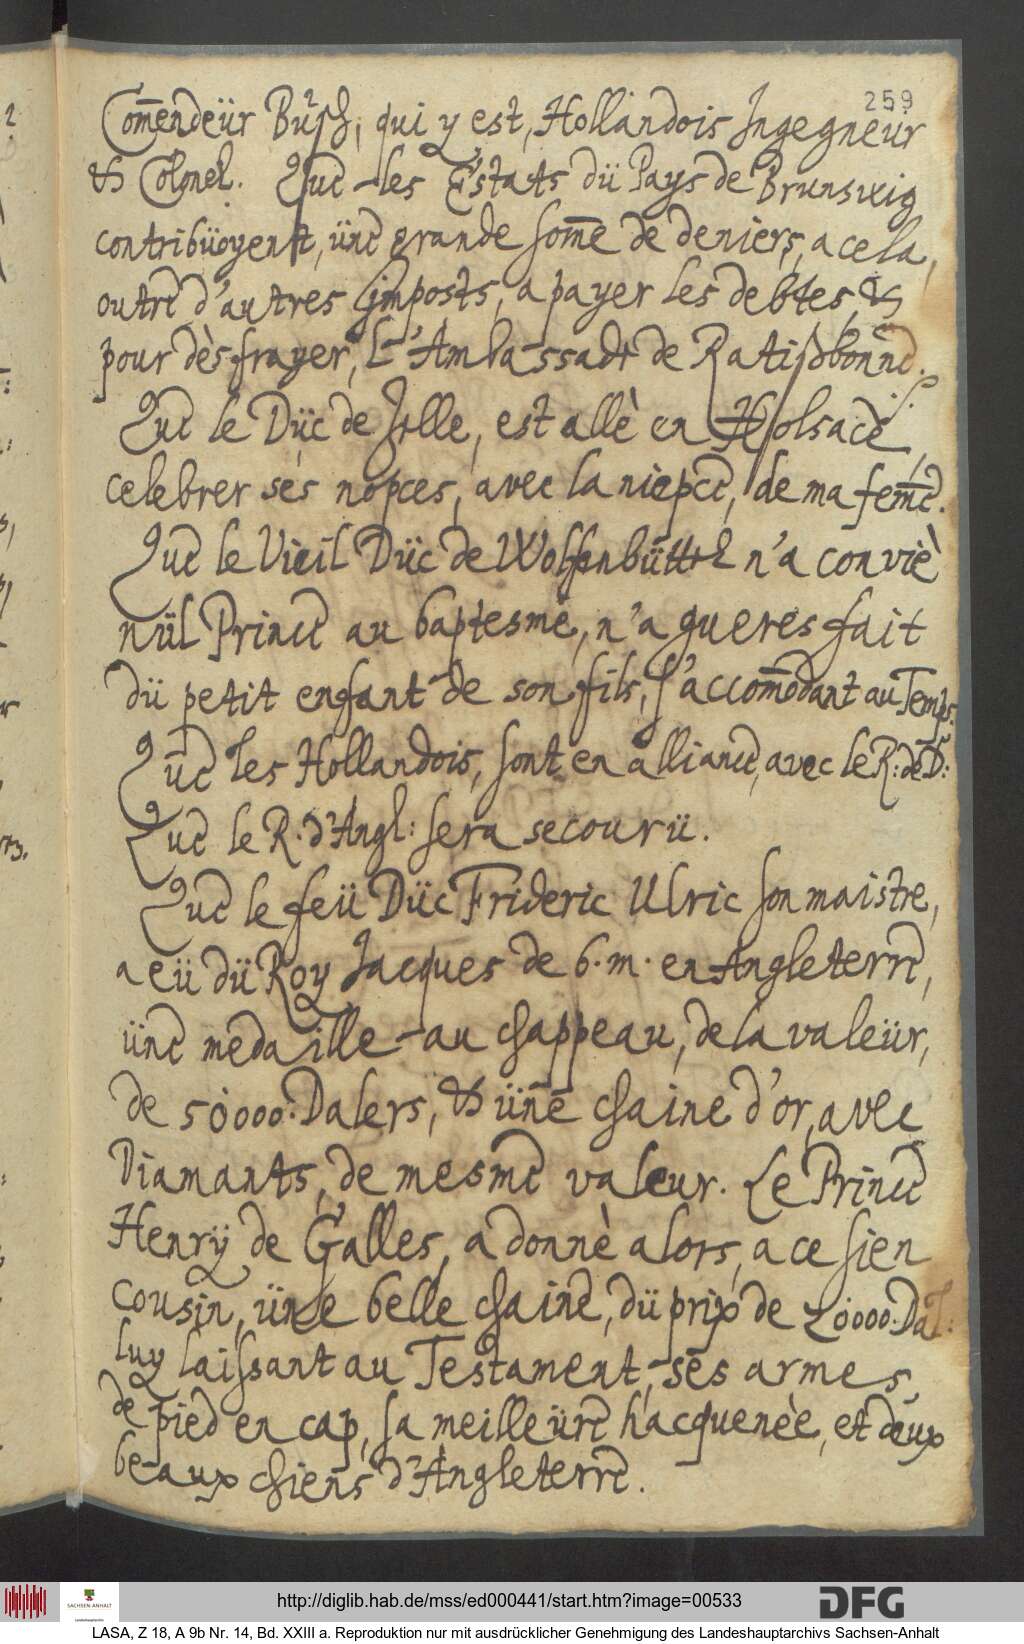 259
Com̃endeür Büsch, qui y est, Hollandois Ingegneür
& Colonel. Que les Estats dü Pays de Brunsvig
contribüoyent, üne grande som̃e de deniers, a cela,
outre d'autres imposts, a payer les debtes, &
pour dèsfrayer, L'Ambassade de Ratisbonne.
Que le Düc de Zelle, est allè en Holsace,
celebrer ses nopces, avec la niepce, de ma fem̃e.
Que le Vieil Düc de Wolfenbüttel n'a conviè
nül Prince au baptesme, n'a gueres fait
dü petit enfant de son fils, s'accom̃odant au Temps.
Que les Hollandois, sont en alliance, avec le R: de D:
Que le R. d'Angl: sera secourü.
Que le feü Düc Frideric Ulric son maistre,
a eü dü Roy Jacques de b. m. en Angleterre,
üne medaille au chappeau, de la valeür,
de 50000. Dalers, & üne chaine d'or, avec
Diamants, de mesme valeur. Le Prince
Henrÿ de Galles, a donnè alors, a ce sien
cousin, üne belle chaine, dü prix de 20000. Dal:
luy laissant au Testament, ses armes,
de pied en cap, sa meilleüre hacquenèe, et deux
beaux chiens d'Angleterre.
http://diglib.hab.de/mss/ed000441/start.htm?image=00533
DFG
SACHSEN-ANHALT
Landeshauptarchiv
LASA, Z 18, A 9b Nr. 14, Bd. XXIII a. Reproduktion nur mit ausdrücklicher Genehmigung des Landeshauptarchivs Sachsen-Anhalt